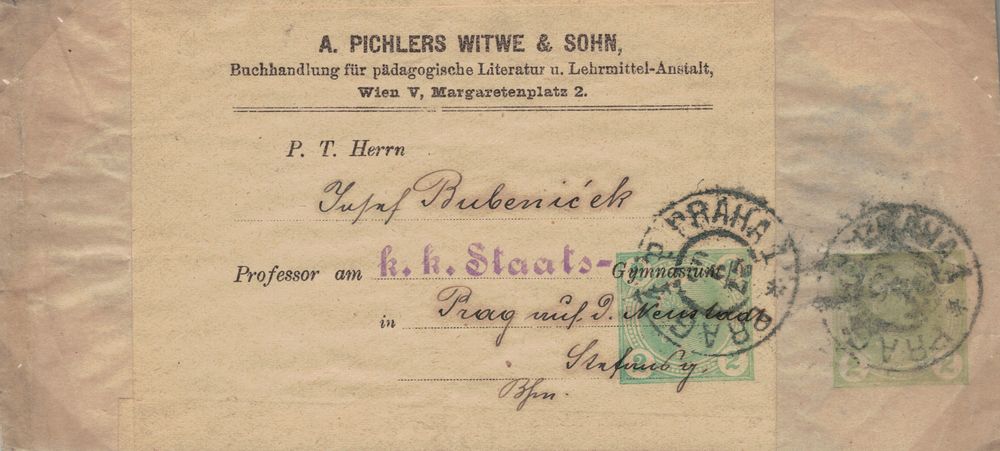 A. PICHLERS WITWE & SOHN,
Buchhandlung für pädagogische Literatur u. Lehrmittel-Anstalt,
Wien V, Margaretenplatz 2.
P. T. Herrn
Josef Bubeniček
Professor am k. k. Staats-Gymnasium
in Prag auf d. Neustadt
Stefansg.
Bhm.
PRAHA 1
PRAG
2 2
PRAHA 1
PRAG
2 2